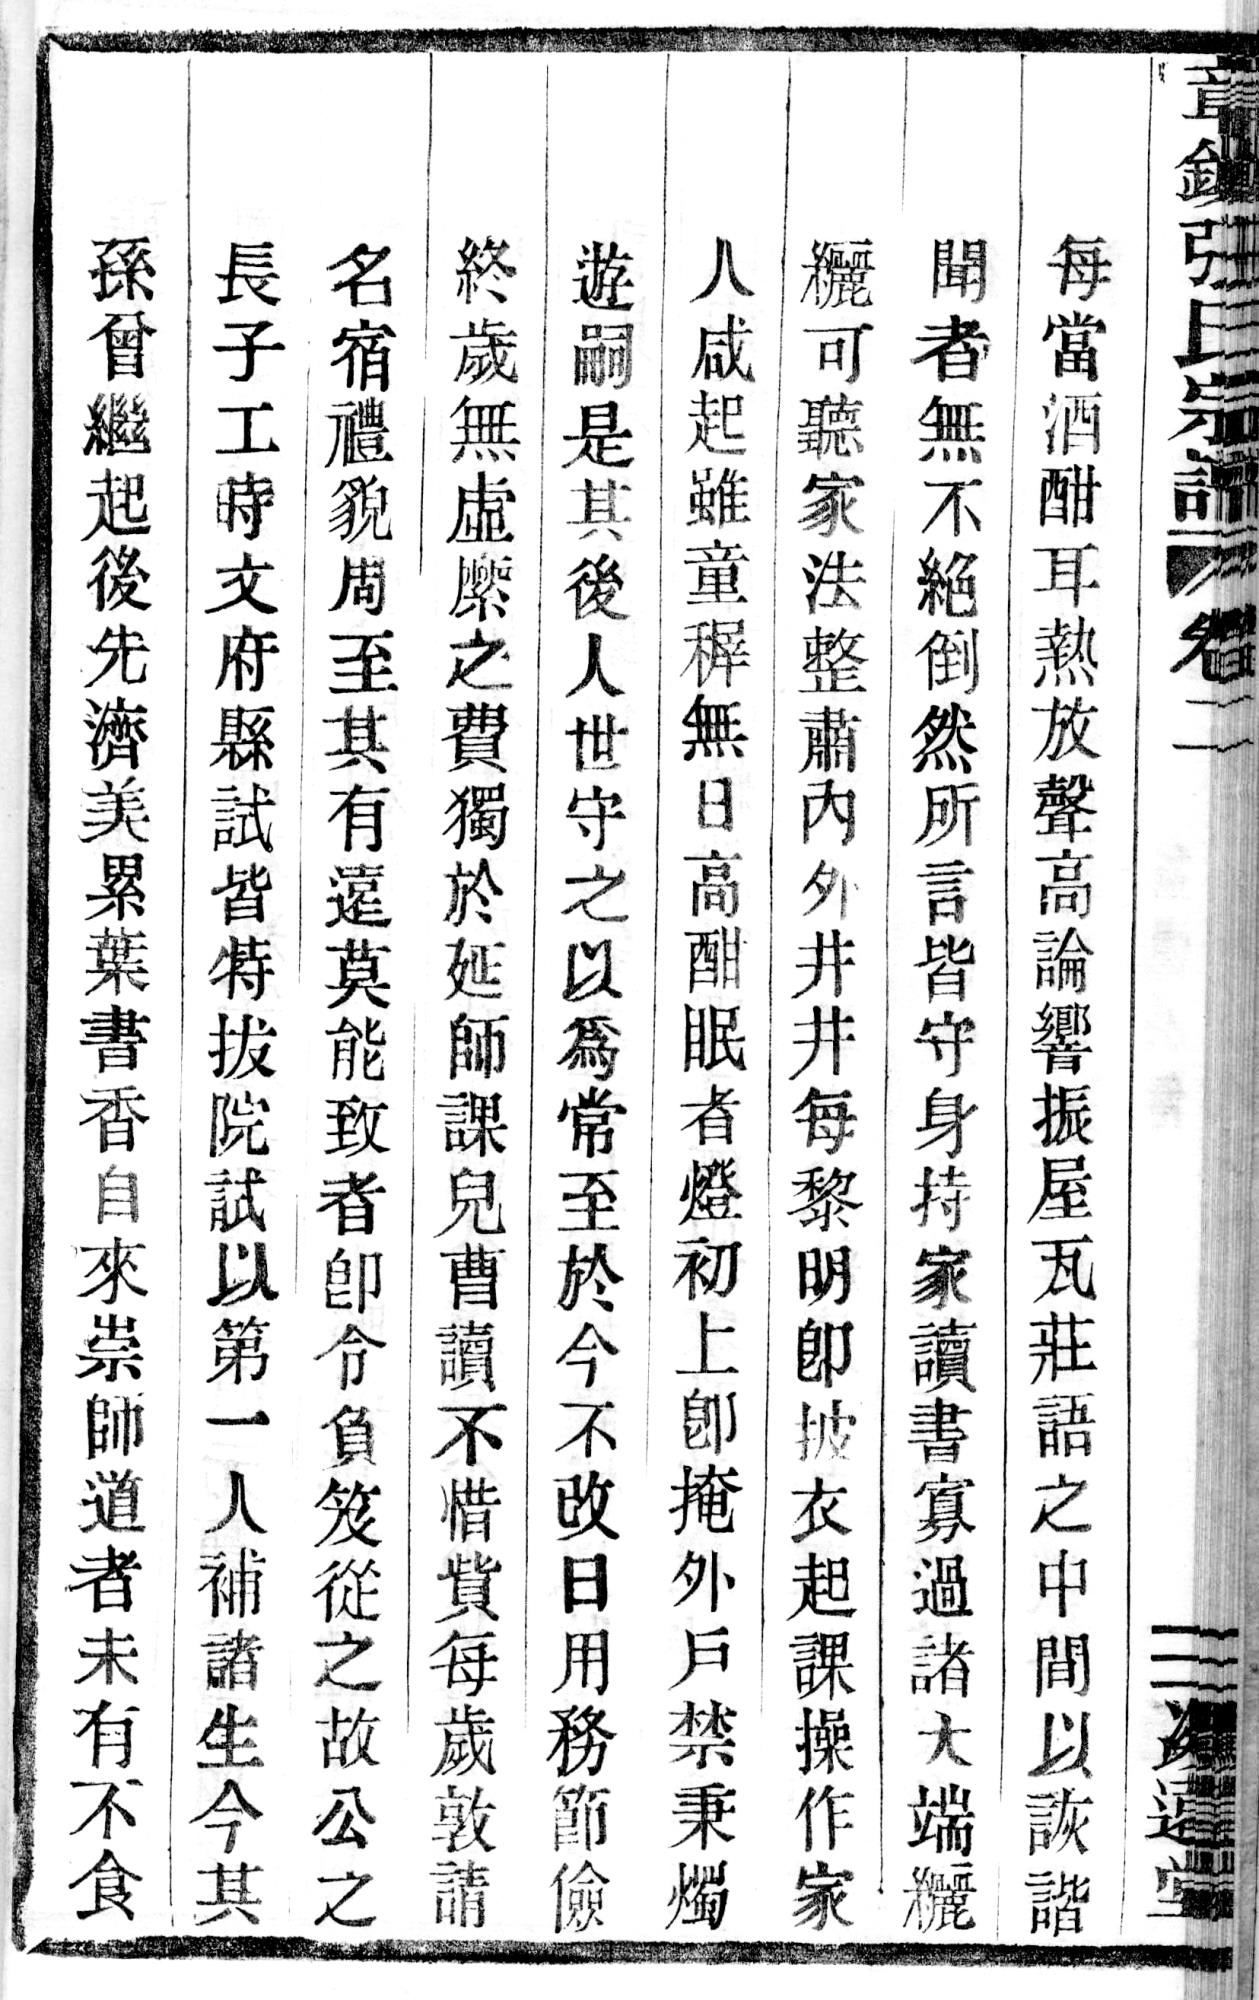 張氏宗譜 卷二
每當酒酣耳熱放聲高論響振屋瓦莊語之中間以詼諧
聞者無不絕倒然所言皆守身持家讀書寡過諸大端纚
纚可聽家法整肅內外井井每黎明卽披衣起課操作家
人咸起雖童穉無日高酣眠者燈初上卽掩外戶禁秉燭
遊嗣是其後人世守之以爲常至於今不改日用務節儉
終歲無虛縻之費獨於延師課兒曹讀不惜貲每歲敦請
名宿禮貌周至其有遠莫能致者卽令負笈從之故公之
長子工時文府縣試皆特拔院試以第一人補諸生今其
孫曾繼起後先濟美累葉書香自來崇師道者未有不食